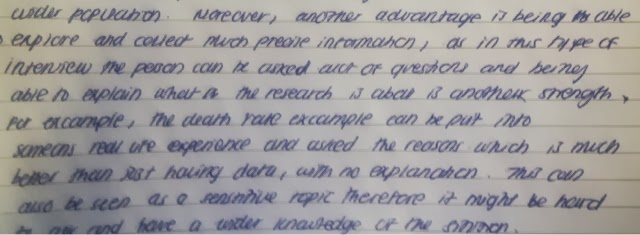 under population. Moreover, another advantage is being able
explore and collect much precise information, as in this type of
interview the person can be asked alot of questions and being
able to explain what the research is about is another strength,
For excample, the death rate excample can be put into
someons real life experience and asked the reasons which is much
better than just having data, with no explanation. This can
also be seen as a sensnitive topic therefore it might be hard
and have a wider knowledge of the